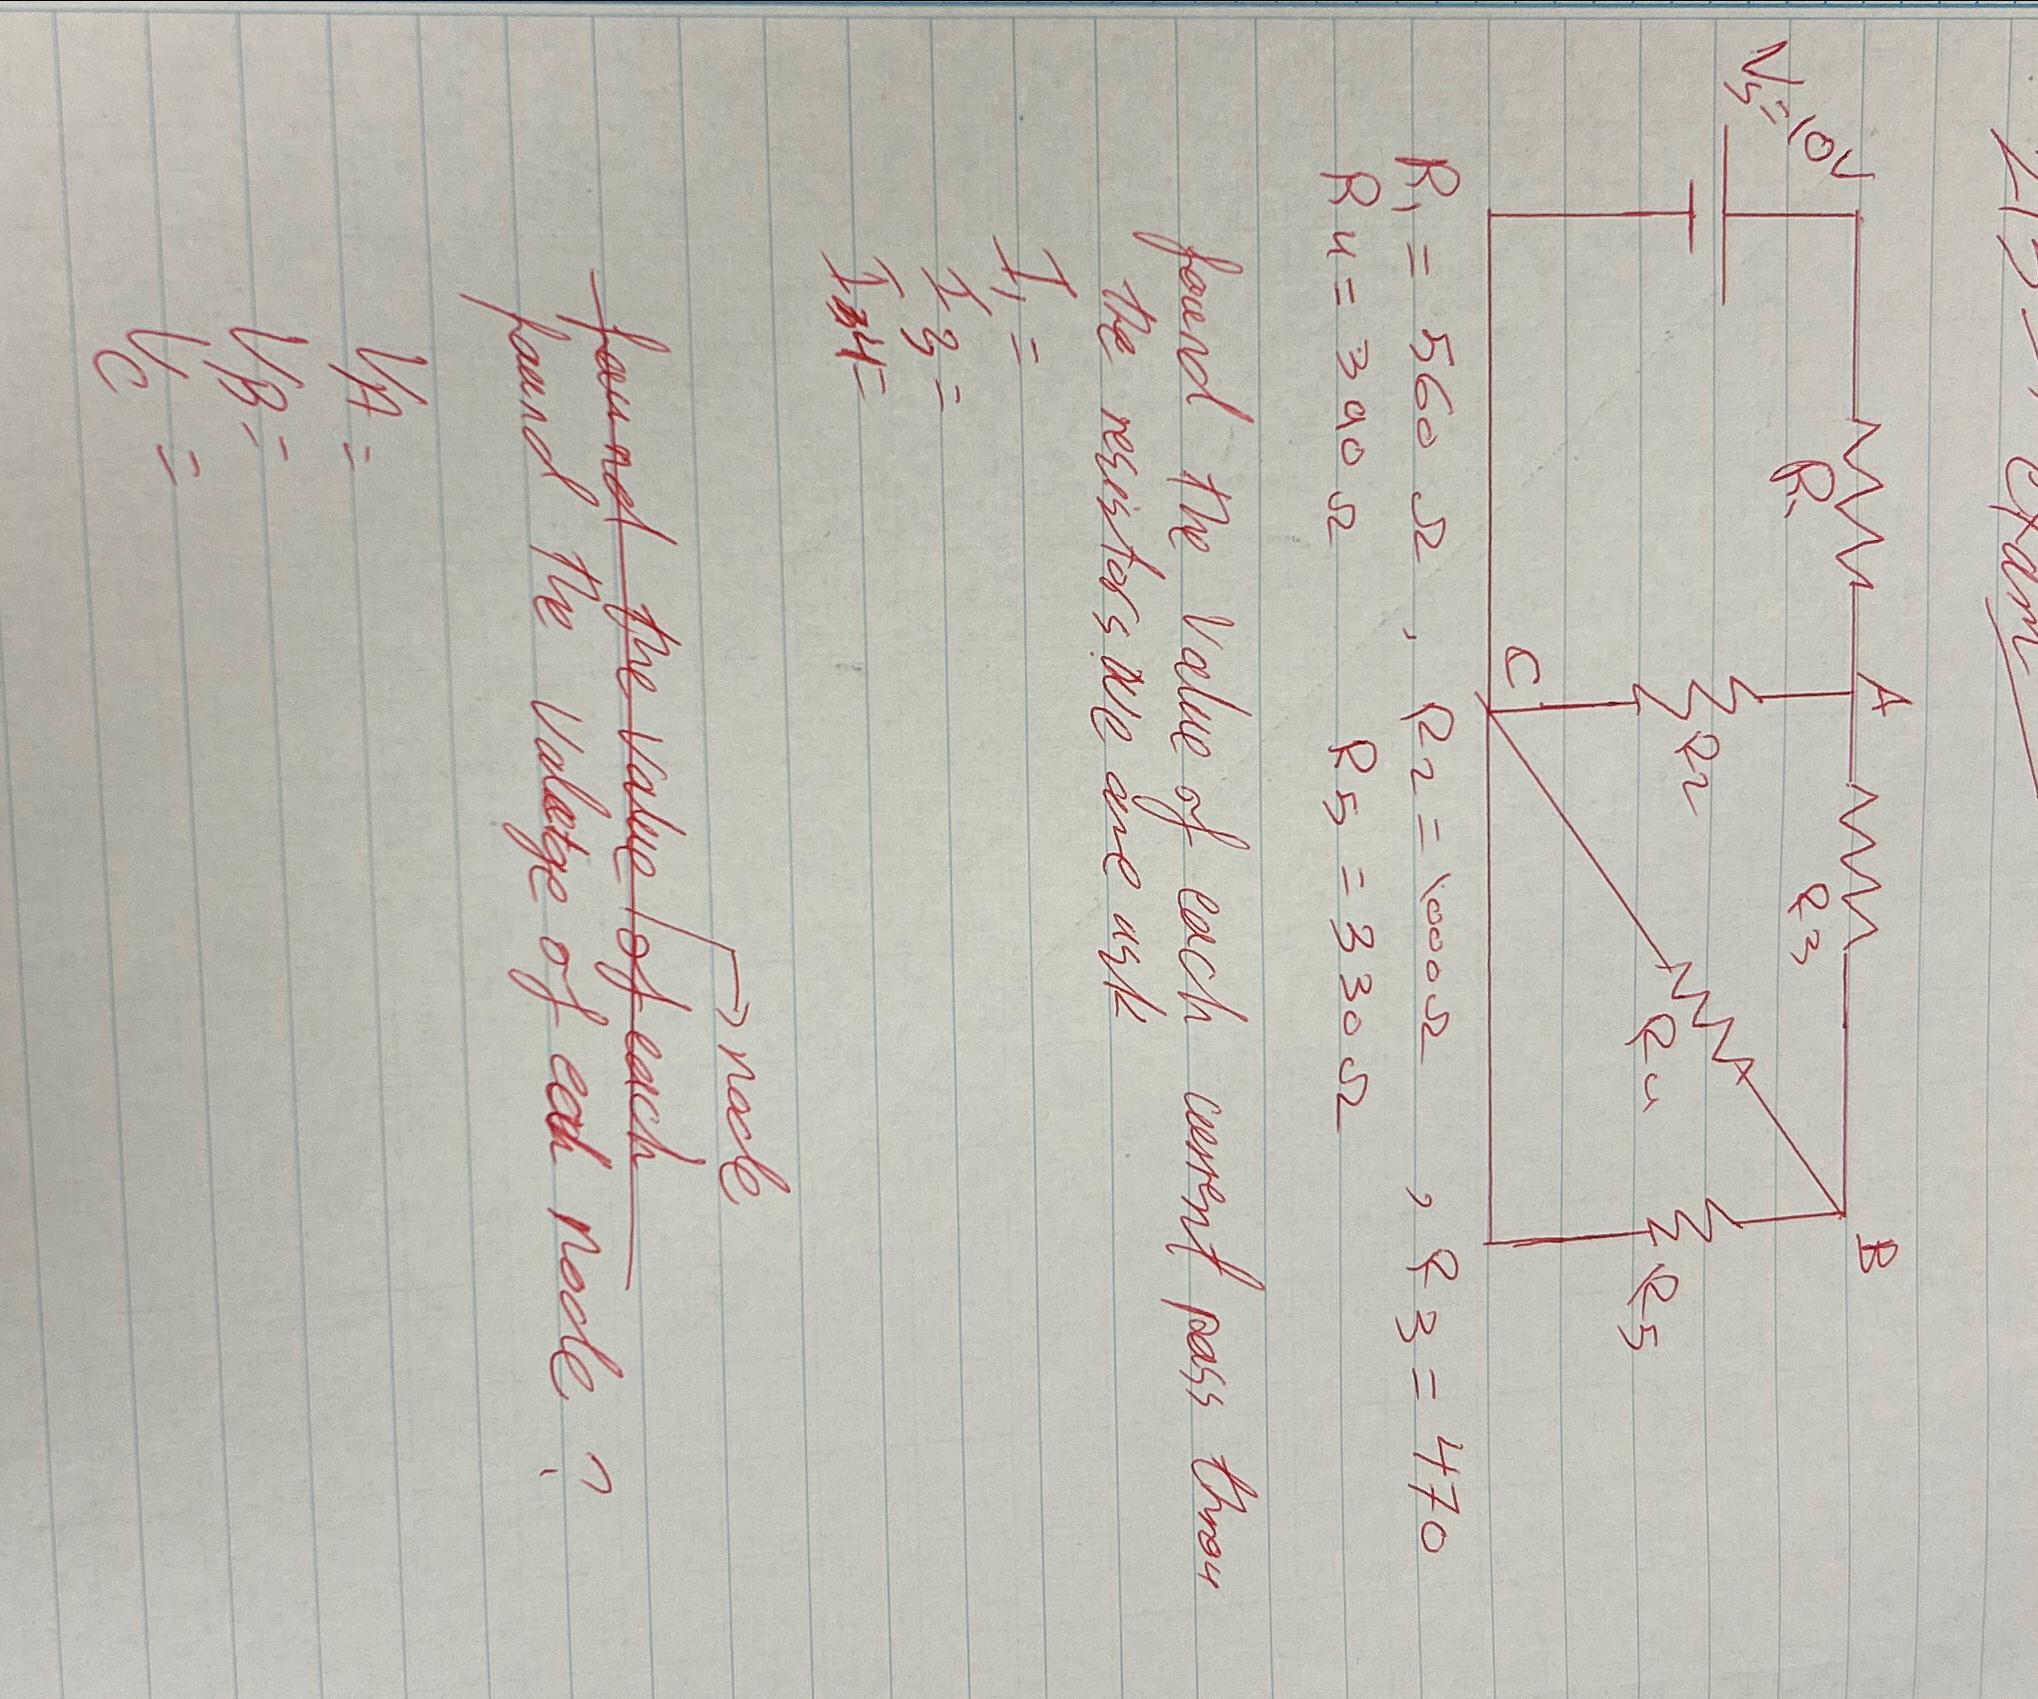 exam
Vs=10V
R1
A
R3
B
R2
R4
R5
C
R1 = 560 Ω , R2 = 1000Ω , R3 = 470
R4 = 390 Ω R5 = 330Ω
found the value of each current pass throu
the resistors we are ask
I1 =
I3 =
I4=
node
found the value of each
found the Valetge of each node ?
VA =
VB =
VC =